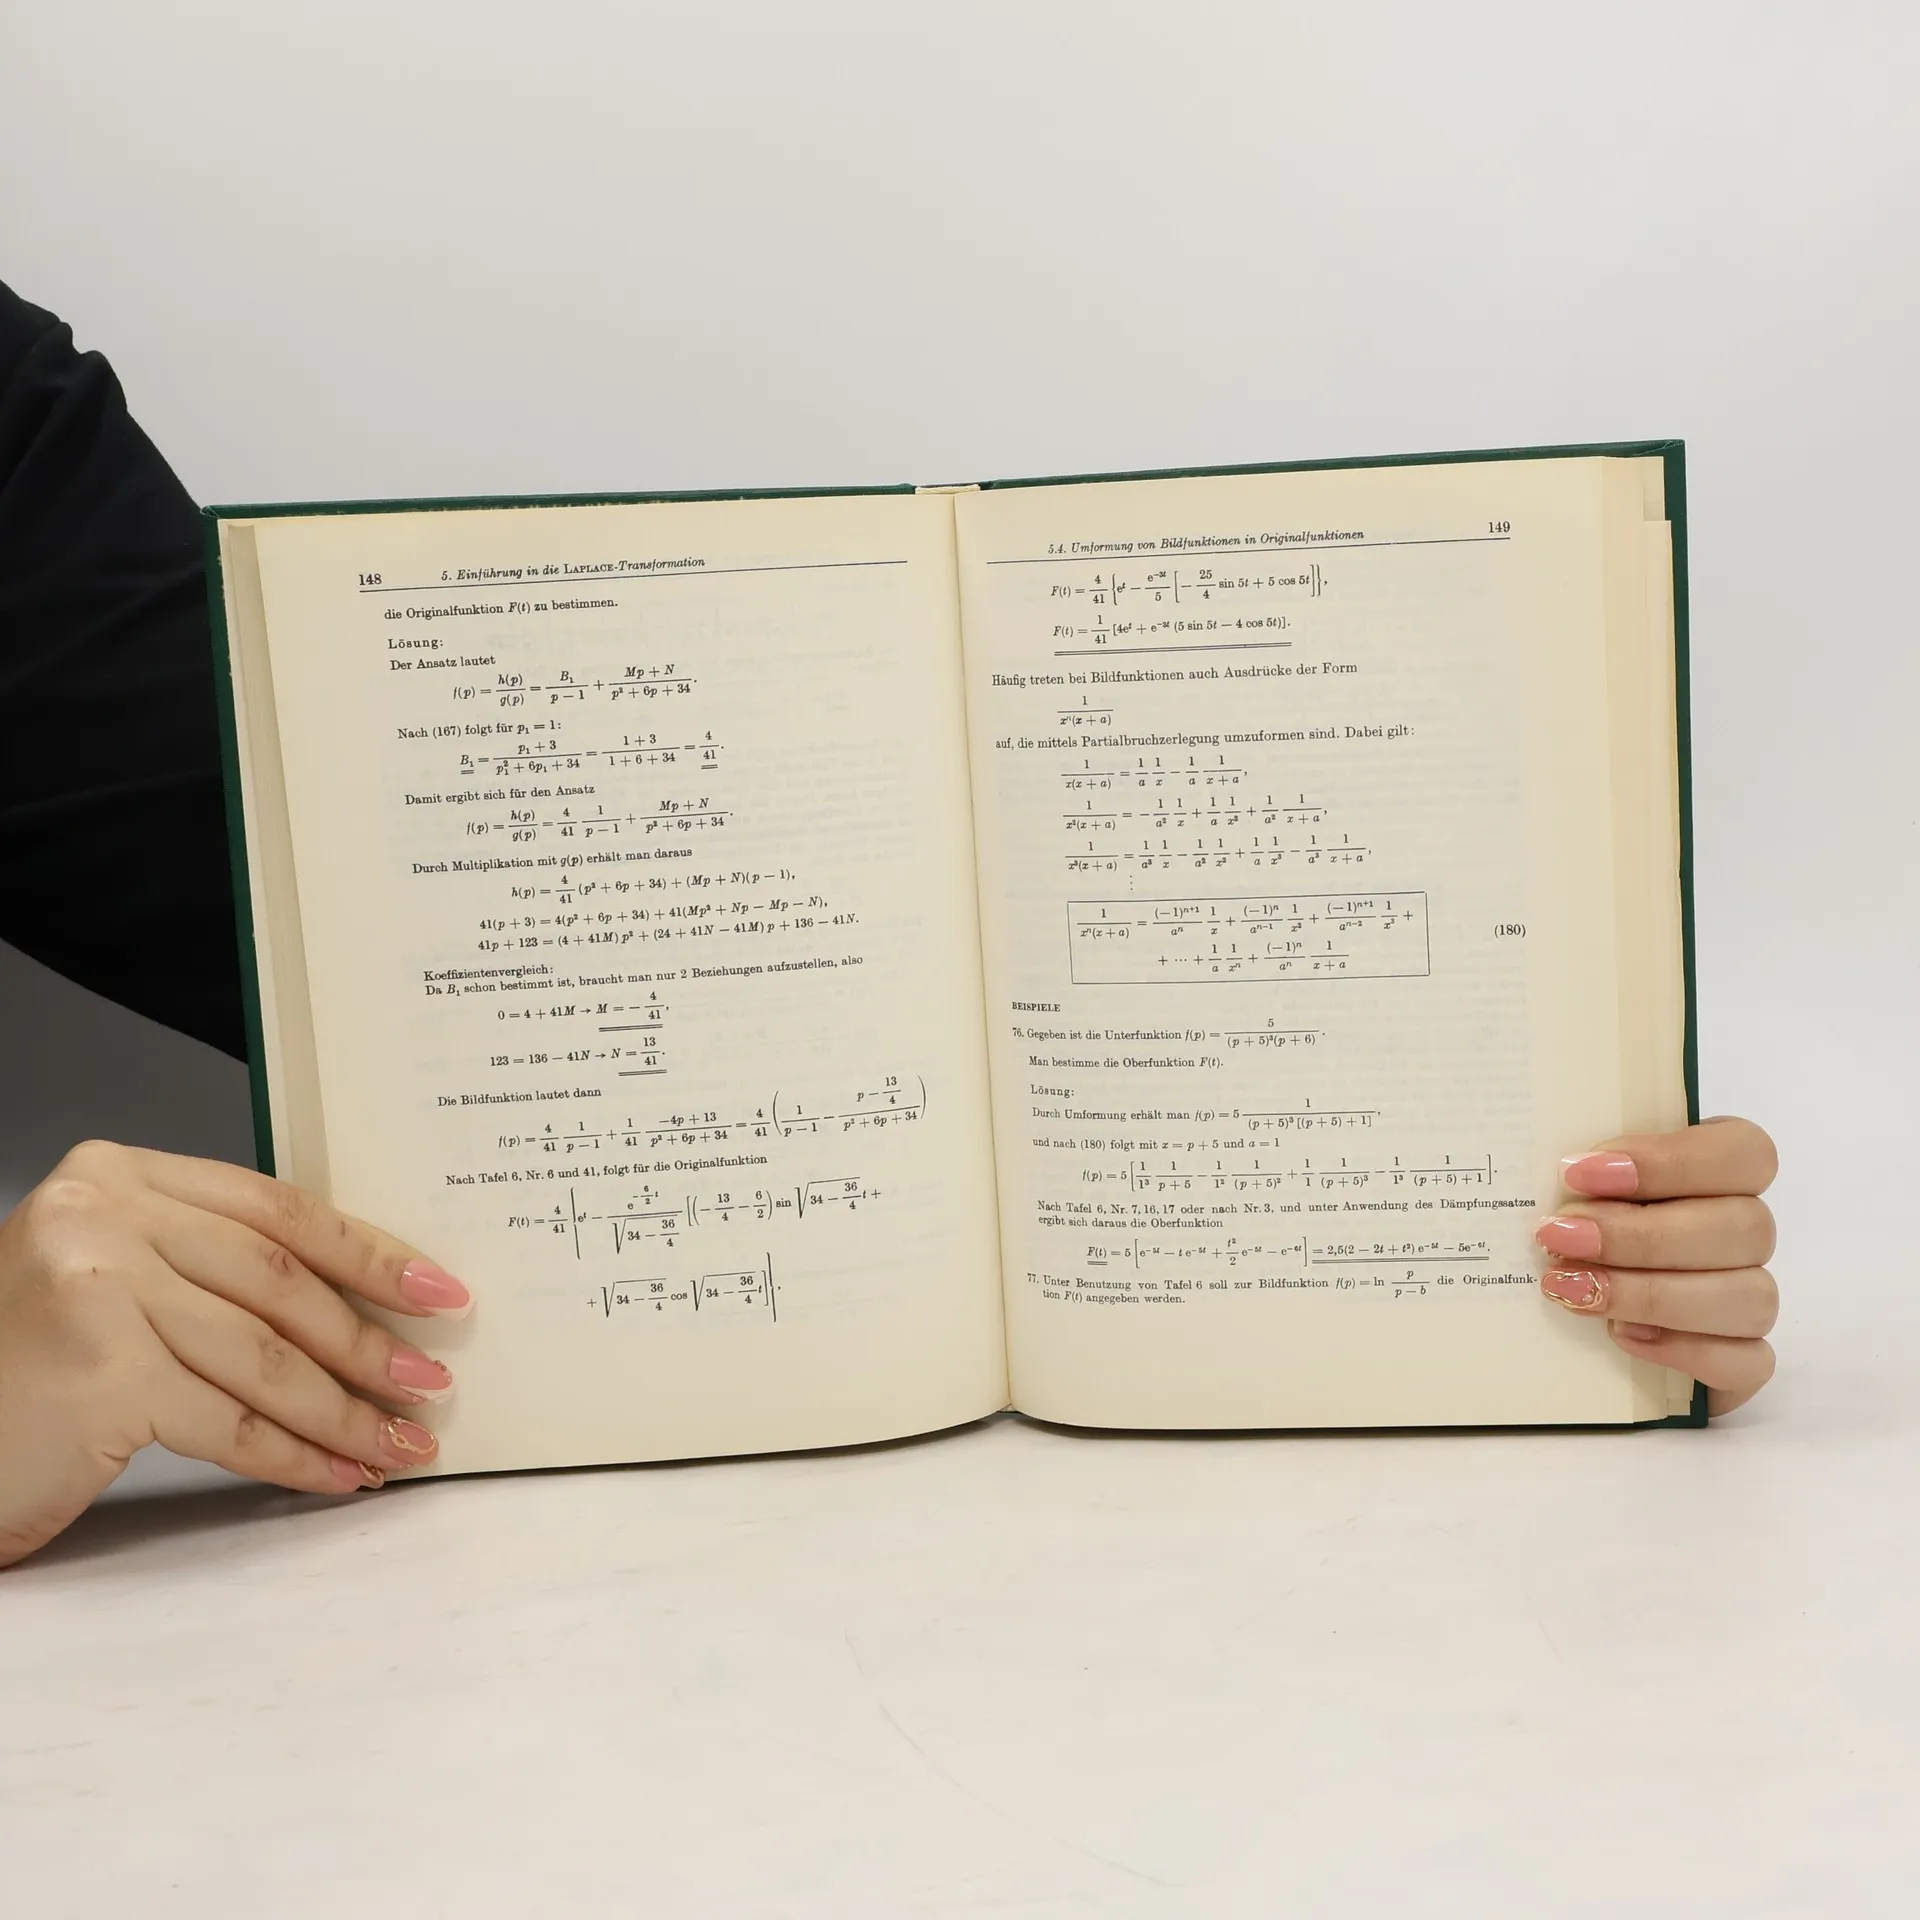 148 5. Einführung in die LAPLACE-Transformation
die Originalfunktion F(t) zu bestimmen.
Lösung:
Der Ansatz lautet
f(p) = h(p)/g(p) = B₁/(p − 1) + (Mp + N)/(p² + 6p + 34).
Nach (167) folgt für p₁ = 1:
B₁ = (p₁ + 3)/(p₁² + 6p₁ + 34) = (1 + 3)/(1 + 6 + 34) = 4/41.
Damit ergibt sich für den Ansatz
f(p) = h(p)/g(p) = 4/41 1/(p − 1) + (Mp + N)/(p² + 6p + 34).
Durch Multiplikation mit g(p) erhält man daraus
h(p) = 4/41 (p² + 6p + 34) + (Mp + N)(p − 1),
41(p + 3) = 4(p² + 6p + 34) + 41(Mp² + Np − Mp − N),
41p + 123 = (4 + 41M) p² + (24 + 41N − 41M) p + 136 − 41N.
Koeffizientenvergleich:
Da B₁ schon bestimmt ist, braucht man nur 2 Beziehungen aufzustellen, also
0 = 4 + 41M → M = − 4/41,
123 = 136 − 41N → N = 13/41.
Die Bildfunktion lautet dann
f(p) = 4/41 1/(p − 1) + 1/41 (−4p + 13)/(p² + 6p + 34) = 4/41 (1/(p − 1) − (p − 13/4)/(p² + 6p + 34))
Nach Tafel 6, Nr. 6 und 41, folgt für die Originalfunktion
F(t) = 4/41 {eᵗ − e^(−6/2 t)/√(34 − 36/4) [(− 13/4 − 6/2) sin √(34 − 36/4) t +
+ √(34 − 36/4) cos √(34 − 36/4) t]},
5.4. Umformung von Bildfunktionen in Originalfunktionen 149
F(t) = 4/41 {eᵗ − e^(−3t)/5 [− 25/4 sin 5t + 5 cos 5t]},
F(t) = 1/41 [4eᵗ + e^(−3t) (5 sin 5t − 4 cos 5t)].
Häufig treten bei Bildfunktionen auch Ausdrücke der Form
1/(xⁿ(x + a))
auf, die mittels Partialbruchzerlegung umzuformen sind. Dabei gilt:
1/(x(x + a)) = 1/a 1/x − 1/a 1/(x + a),
1/(x²(x + a)) = − 1/a² 1/x + 1/a 1/x² + 1/a² 1/(x + a),
1/(x³(x + a)) = 1/a³ 1/x − 1/a² 1/x² + 1/a 1/x³ − 1/a³ 1/(x + a),
⋮
1/(xⁿ(x + a)) = (−1)ⁿ⁺¹/aⁿ 1/x + (−1)ⁿ/aⁿ⁻¹ 1/x² + (−1)ⁿ⁺¹/aⁿ⁻² 1/x³ +
+ ⋯ + 1/a 1/xⁿ + (−1)ⁿ/aⁿ 1/(x + a) (180)
BEISPIELE
76. Gegeben ist die Unterfunktion f(p) = 5/((p + 5)³(p + 6)).
Man bestimme die Oberfunktion F(t).
Lösung:
Durch Umformung erhält man f(p) = 5 1/((p + 5)³ [(p + 5) + 1]),
und nach (180) folgt mit x = p + 5 und a = 1
f(p) = 5 [1/1³ 1/(p + 5) − 1/1² 1/(p + 5)² + 1/1 1/(p + 5)³ − 1/1³ 1/((p + 5) + 1)].
Nach Tafel 6, Nr. 7, 16, 17 oder nach Nr. 3, und unter Anwendung des Dämpfungssatzes
ergibt sich daraus die Oberfunktion
F(t) = 5 [e^(−5t) − t e^(−5t) + t²/2 e^(−5t) − e^(−6t)] = 2,5(2 − 2t + t²) e^(−5t) − 5e^(−6t).
77. Unter Benutzung von Tafel 6 soll zur Bildfunktion f(p) = ln p/(p − b) die Originalfunk-
tion F(t) angegeben werden.